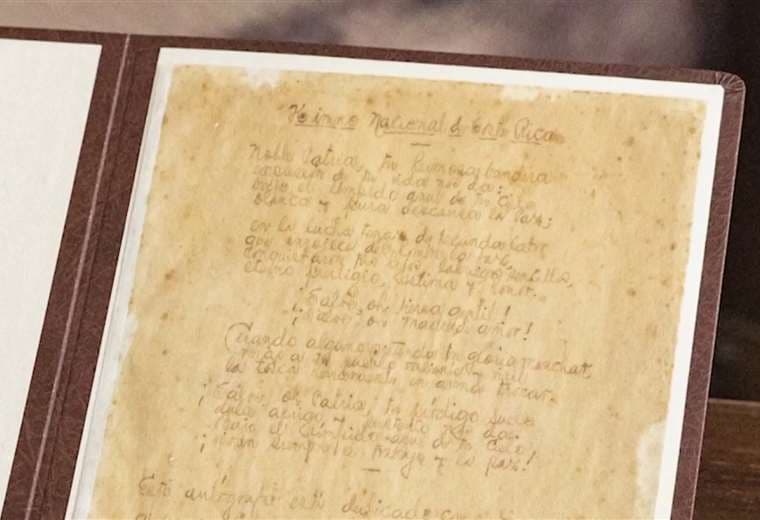 Himno Nacional de Costa Rica
Noble Patria, tu hermosa bandera
expresión de tu vida nos da:
bajo el límpido azul de tu cielo
blanca y pura descansa la paz;
en la lucha tenaz, de fecunda labor
que enrojece del hombre la faz,
conquistaron tus hijos, labriegos sencillos,
eterno prestigio, estima y honor.
¡Salve, oh tierra gentil!
¡Salve, oh madre de amor!
Cuando alguno pretenda tu gloria manchar,
verás a tu pueblo valiente y viril
la tosca herramienta en arma trocar.
¡Salve, oh Patria, tu pródigo suelo
dulce abrigo y sustento nos da;
bajo el límpido azul de tu cielo
¡vivan siempre el trabajo y la paz!
Este autógrafo está dedicado